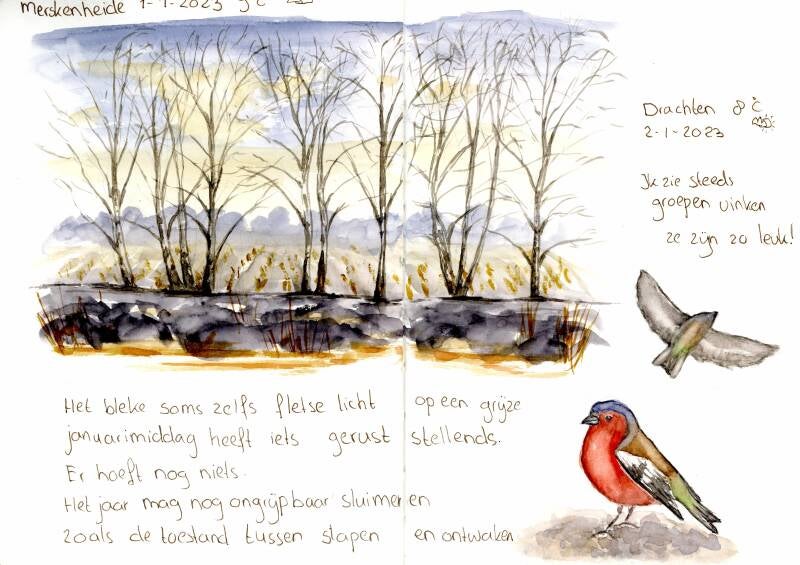 Merskenheide 1-1-2023 9°C
Drachten 8°C
2-1-2023
Ik zie steeds
groepen vinken
ze zijn zo leuk!
Het bleke soms zelfs fletse licht op een grijze
januarimiddag heeft iets gerust stellends.
Er hoeft nog niets.
Het jaar mag nog ongrijpbaar sluimeren
zoals de toestand tussen slapen en ontwaken